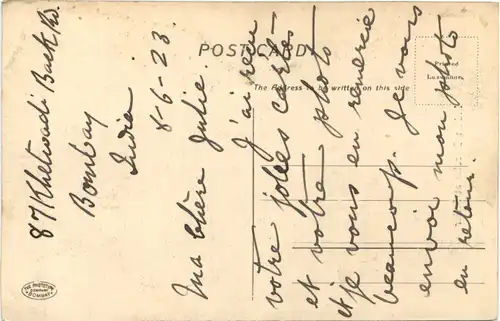 87 Khetwadi Back Rd.
Bombay
India
8-6-23
Ma chère Julie.
J'ai reçu
votre jolies cartes
et votre photo
et je vous en remercie
beaucoup. Je vous
envoi mon photo
en retour.
POST CARD
The Address to be written on this side
Printed
in
Luxembourg
THE PHOTOTYPE
COMPANY
BOMBAY